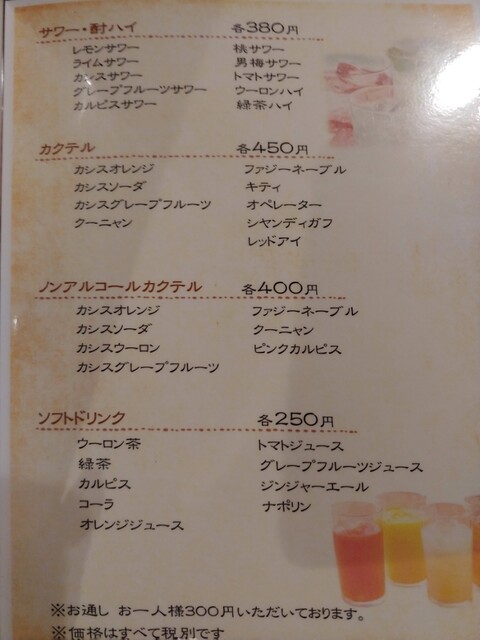 サワー・酎ハイ 各380円
レモンサワー 桃サワー
ライムサワー 男梅サワー
カシスサワー トマトサワー
グレープフルーツサワー ウーロンハイ
カルピスサワー 緑茶ハイ
カクテル 各450円
カシスオレンジ ファジーネーブル
カシスソーダ キティ
カシスグレープフルーツ オペレーター
クーニャン シヤンディガフ
レッドアイ
ノンアルコールカクテル 各400円
カシスオレンジ ファジーネーブル
カシスソーダ クーニャン
カシスウーロン ピンクカルピス
カシスグレープフルーツ
ソフトドリンク 各250円
ウーロン茶 トマトジュース
緑茶 グレープフルーツジュース
カルピス ジンジャーエール
コーラ ナポリン
オレンジジュース
※お通し お一人様300円いただいております。
※価格はすべて税別です